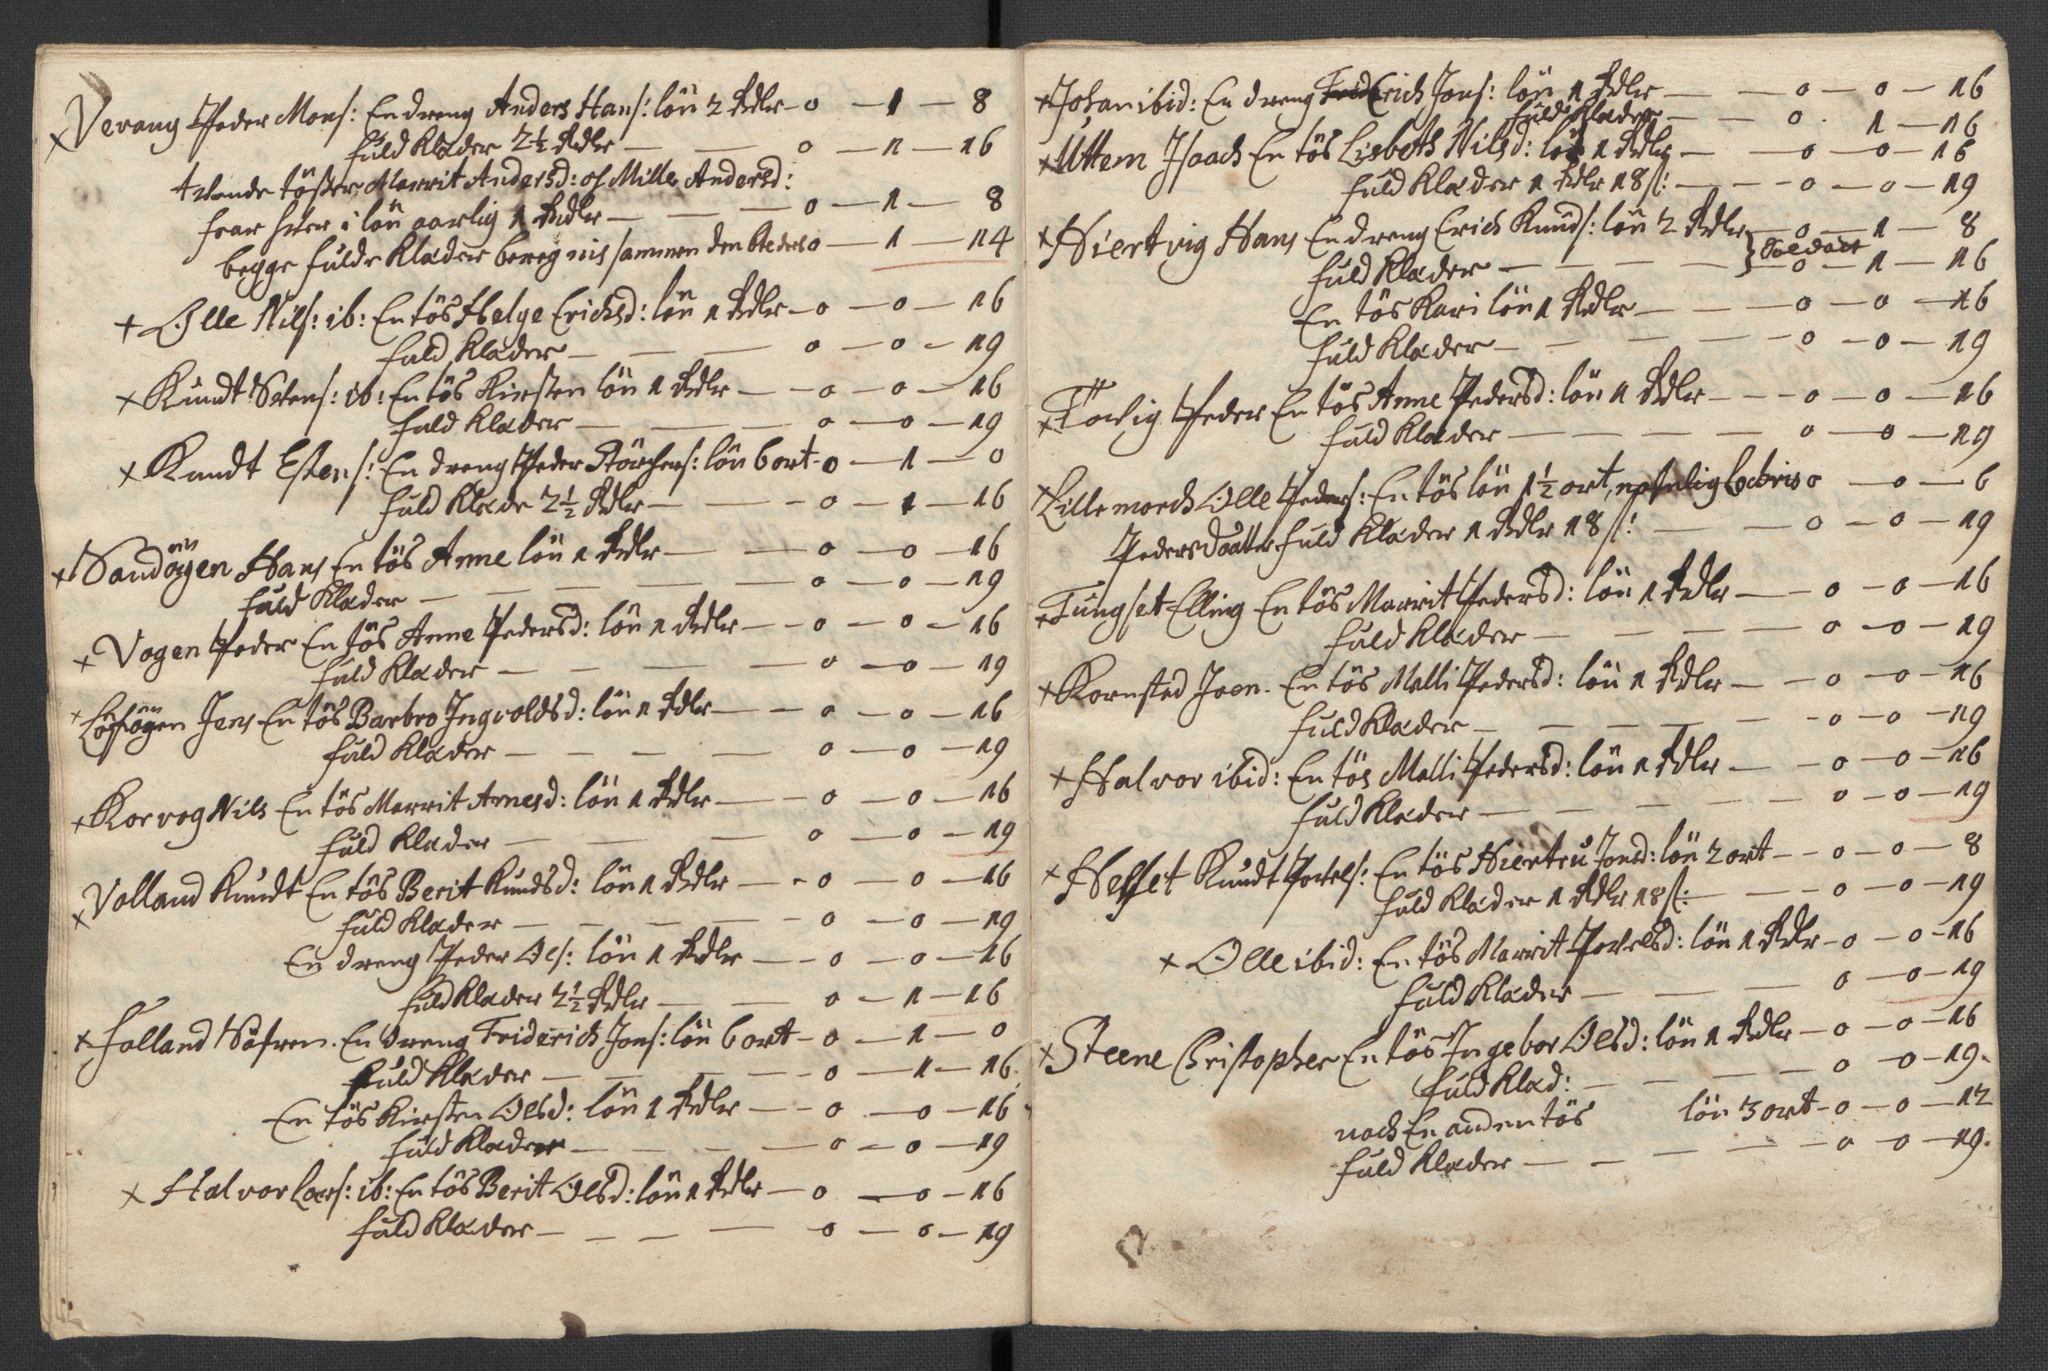 × Verang Peder Mons: En dreng Anders Hans: lön 2 Rdlr – 0 – 1 – 8
fuld Klæder 2½ Rdlr – 0 – 1 – 16
tvende töser, Marrit Andersd: og Mille Andersd:
faar hver i lön aarlig 1 Rdlr – 0 – 1 – 8
begge fulde Klæder bereg nis sammen – 0 – 1 – 14
+ Olle Nils: ib: En tös Helge Erichsd: lön 1 Rdlr – 0 – 0 – 16
fuld Klæder – 0 – 0 – 19
× Knudt Stens: ib: En tös Kirsten lön 1 Rdlr – 0 – 0 – 16
fuld Klæder – 0 – 0 – 19
× Knudt Estens: En dreng Peder lön 6 ort – 0 – 1 – 0
fuld Klæde 2½ Rdlr – 0 – 1 – 16
× Sandöÿen Hans En tös Anne lön 1 Rdlr – 0 – 0 – 16
fuld Klæder – 0 – 0 – 19
× Vogen Peder En tös Anne Pedersd: lön 1 Rdlr – 0 – 0 – 16
fuld Klæder – 0 – 0 – 19
× Jens En tös Barbro Ingvoldsd: lön 1 Rdlr – 0 – 0 – 16
fuld Klæder – 0 – 0 – 19
× Korvog Nils En tös Marrit Arnesd: lön 1 Rdlr – 0 – 0 – 16
fuld Klæder – 0 – 0 – 19
× Volland Knudt En tös Berit Knudsd: lön 1 Rdlr – 0 – 0 – 16
fuld Klæder – 0 – 0 – 19
En dreng Peder Ols: lön 1 Rdlr – 0 – 0 – 16
fuld Klæder 2½ Rdlr – 0 – 1 – 16
× Folland Söfren. En dreng Friderich Jons: lön 6 ort – 0 – 1 – 0
fuld Klæder – 0 – 1 – 16
En tös Kirsten Olsd: lön 1 Rdlr – 0 – 0 – 16
fuld Klæder – 0 – 0 – 19
× Halvor Lars: ib: En tös Berit Olsd: lön 1 Rdlr – 0 – 0 – 16
fuld Klæder – 0 – 0 – 19
× Johan ibid: En dreng Erich Jons: lön 1 Rdlr – 0 – 0 – 16
fuld Klæder – 0 – 1 – 16
× Uttem Isaach En tös Lisbeth Nilsd: lön 1 Rdlr – 0 – 0 – 16
fuld Klæder 1 Rdlr 18 s: – 0 – 0 – 19
× Hiertvig Hans En dreng Erich Knuds: lön 2 Rdlr – 0 – 1 – 8
fuld Klæder – } Soldat – 0 – 1 – 16
En tös Kari lön 1 Rdlr – 0 – 0 – 16
fuld Klæder – 0 – 0 – 19
× Peder En tös Anne Pedersd: lön 1 Rdlr – 0 – 0 – 16
fuld Klæder – 0 – 0 – 19
× Lille morch Olle Peders: En tös lön 1½ ort, 0 – 0 – 6
Pedersdaatter fuld Klæder 1 Rdlr 18 s: – 0 – 0 – 19
× Tungset Elling En tös Marrit Pedersd: lön 1 Rdlr – 0 – 0 – 16
fuld Klæder – 0 – 0 – 19
× Kornsted Joen. En tös Malli Pedersd: lön 1 Rdlr – 0 – 0 – 16
fuld Klæder – 0 – 0 – 19
× Halvor ibid: En tös Malli Pedersd: lön 1 Rdlr – 0 – 0 – 16
fuld Klæder – 0 – 0 – 19
× Helset Knudt Povels: En tös Hiertru Jonsd: lön 2 ort – 0 – 0 – 8
fuld Klæder 1 Rdlr 18 s: – 0 – 0 – 19
× Olle ibid: En tös Marrit Povelsd: lön 1 Rdlr – 0 – 0 – 16
fuld Klæder – 0 – 0 – 19
× Steene Christopher En tös Ingebor Olsd: lön 1 Rdlr – 0 – 0 – 16
fuld Klæd: – 0 – 0 – 19.
noch En anden tös lön 3 ort – 0 – 0 – 12
fuld Klæder – 0 – 0 – 19.